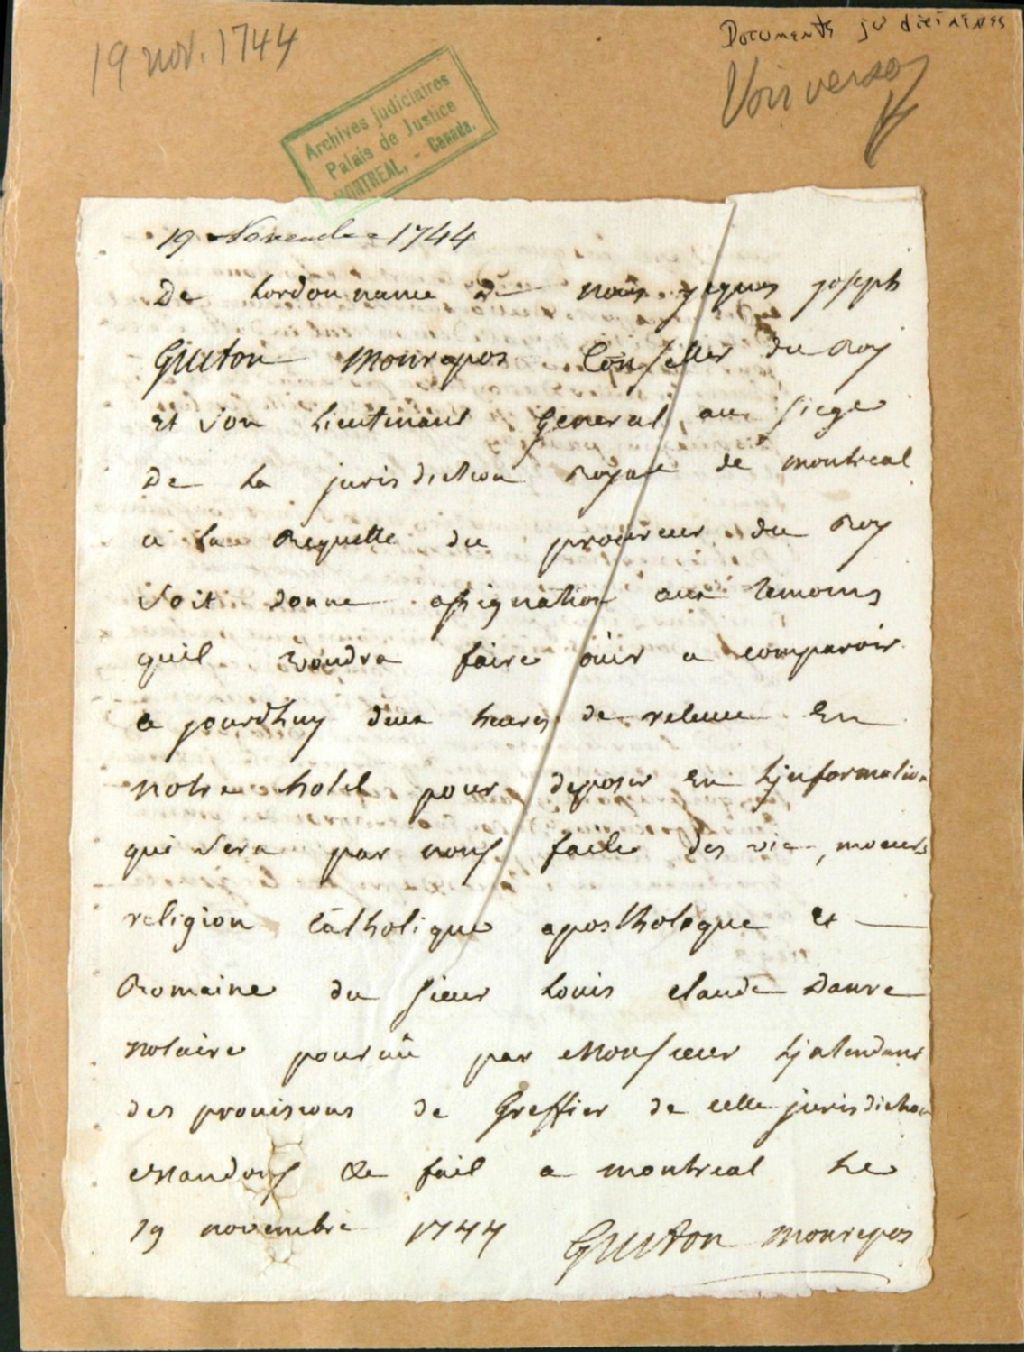 19 nov. 1744
Documents judiciaires
Voir verso
Archives judiciaires
Palais de Justice
MONTREAL, - Canada.
19 Novembre 1744
De Lordonnance de nous jaques joseph
Guiton Monrepos Conseiller du Roy
et son Lieutenant general au siege
de la jurisdiction Royale de montreal
a la Requette du procureur du Roy
soit donne assignation aux temoins
quil voudra faire ouir a comparoir
a jourdhuy deux heures de relevee En
notre hotel pour deposer en Linformation
qui sera par nous faite des vie, moeurs
religion Catholique aposthologue et
Romaine du sieur Louis Claude Danre
notaire pourvû par Monsieur Lintendant
des provisions de Greffier de cette jurisdiction
Mandons &c fait a montreal Le
19 novembre 1744 Guiton Monrepos